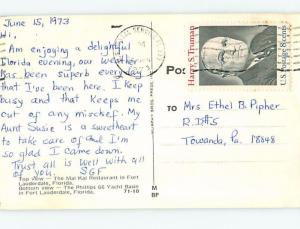 June 15, 1973
Hi,
I Am enjoying a delightful
Florida evening, our weather
has been superb every day
that I've been here. I keep
busy and that keeps me
out of any mischief. My
Aunt Susie is a sweetheart
to take care of and I'm
so glad I came down.
Trust all is well with all
of you. SGF
Top view — The Mai Kai Restaurant in Fort
Lauderdale, Florida.
Bottom view — The Phillips 66 Yacht Basin
in Fort Lauderdale, Florida.
71-10
M
BF
Post
TO
Harry S. Truman
U.S. Postage 8 cents
Mrs Ethel B. Pipher
R.D#5
Towanda, Pa. 18848